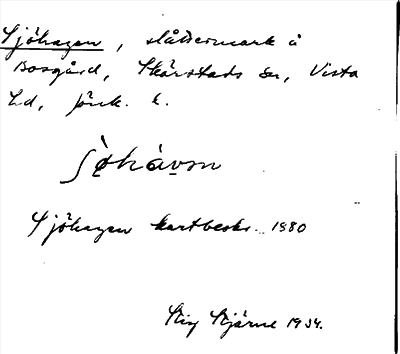 Sjöhagen, slåttermark å
Bosgård, Skärstads sn, Vista
hd, Jönk. l.
ʃø̀hàvɒn
Sjöhagen kartbeskr. 1880
Stig Stjärne 1934.